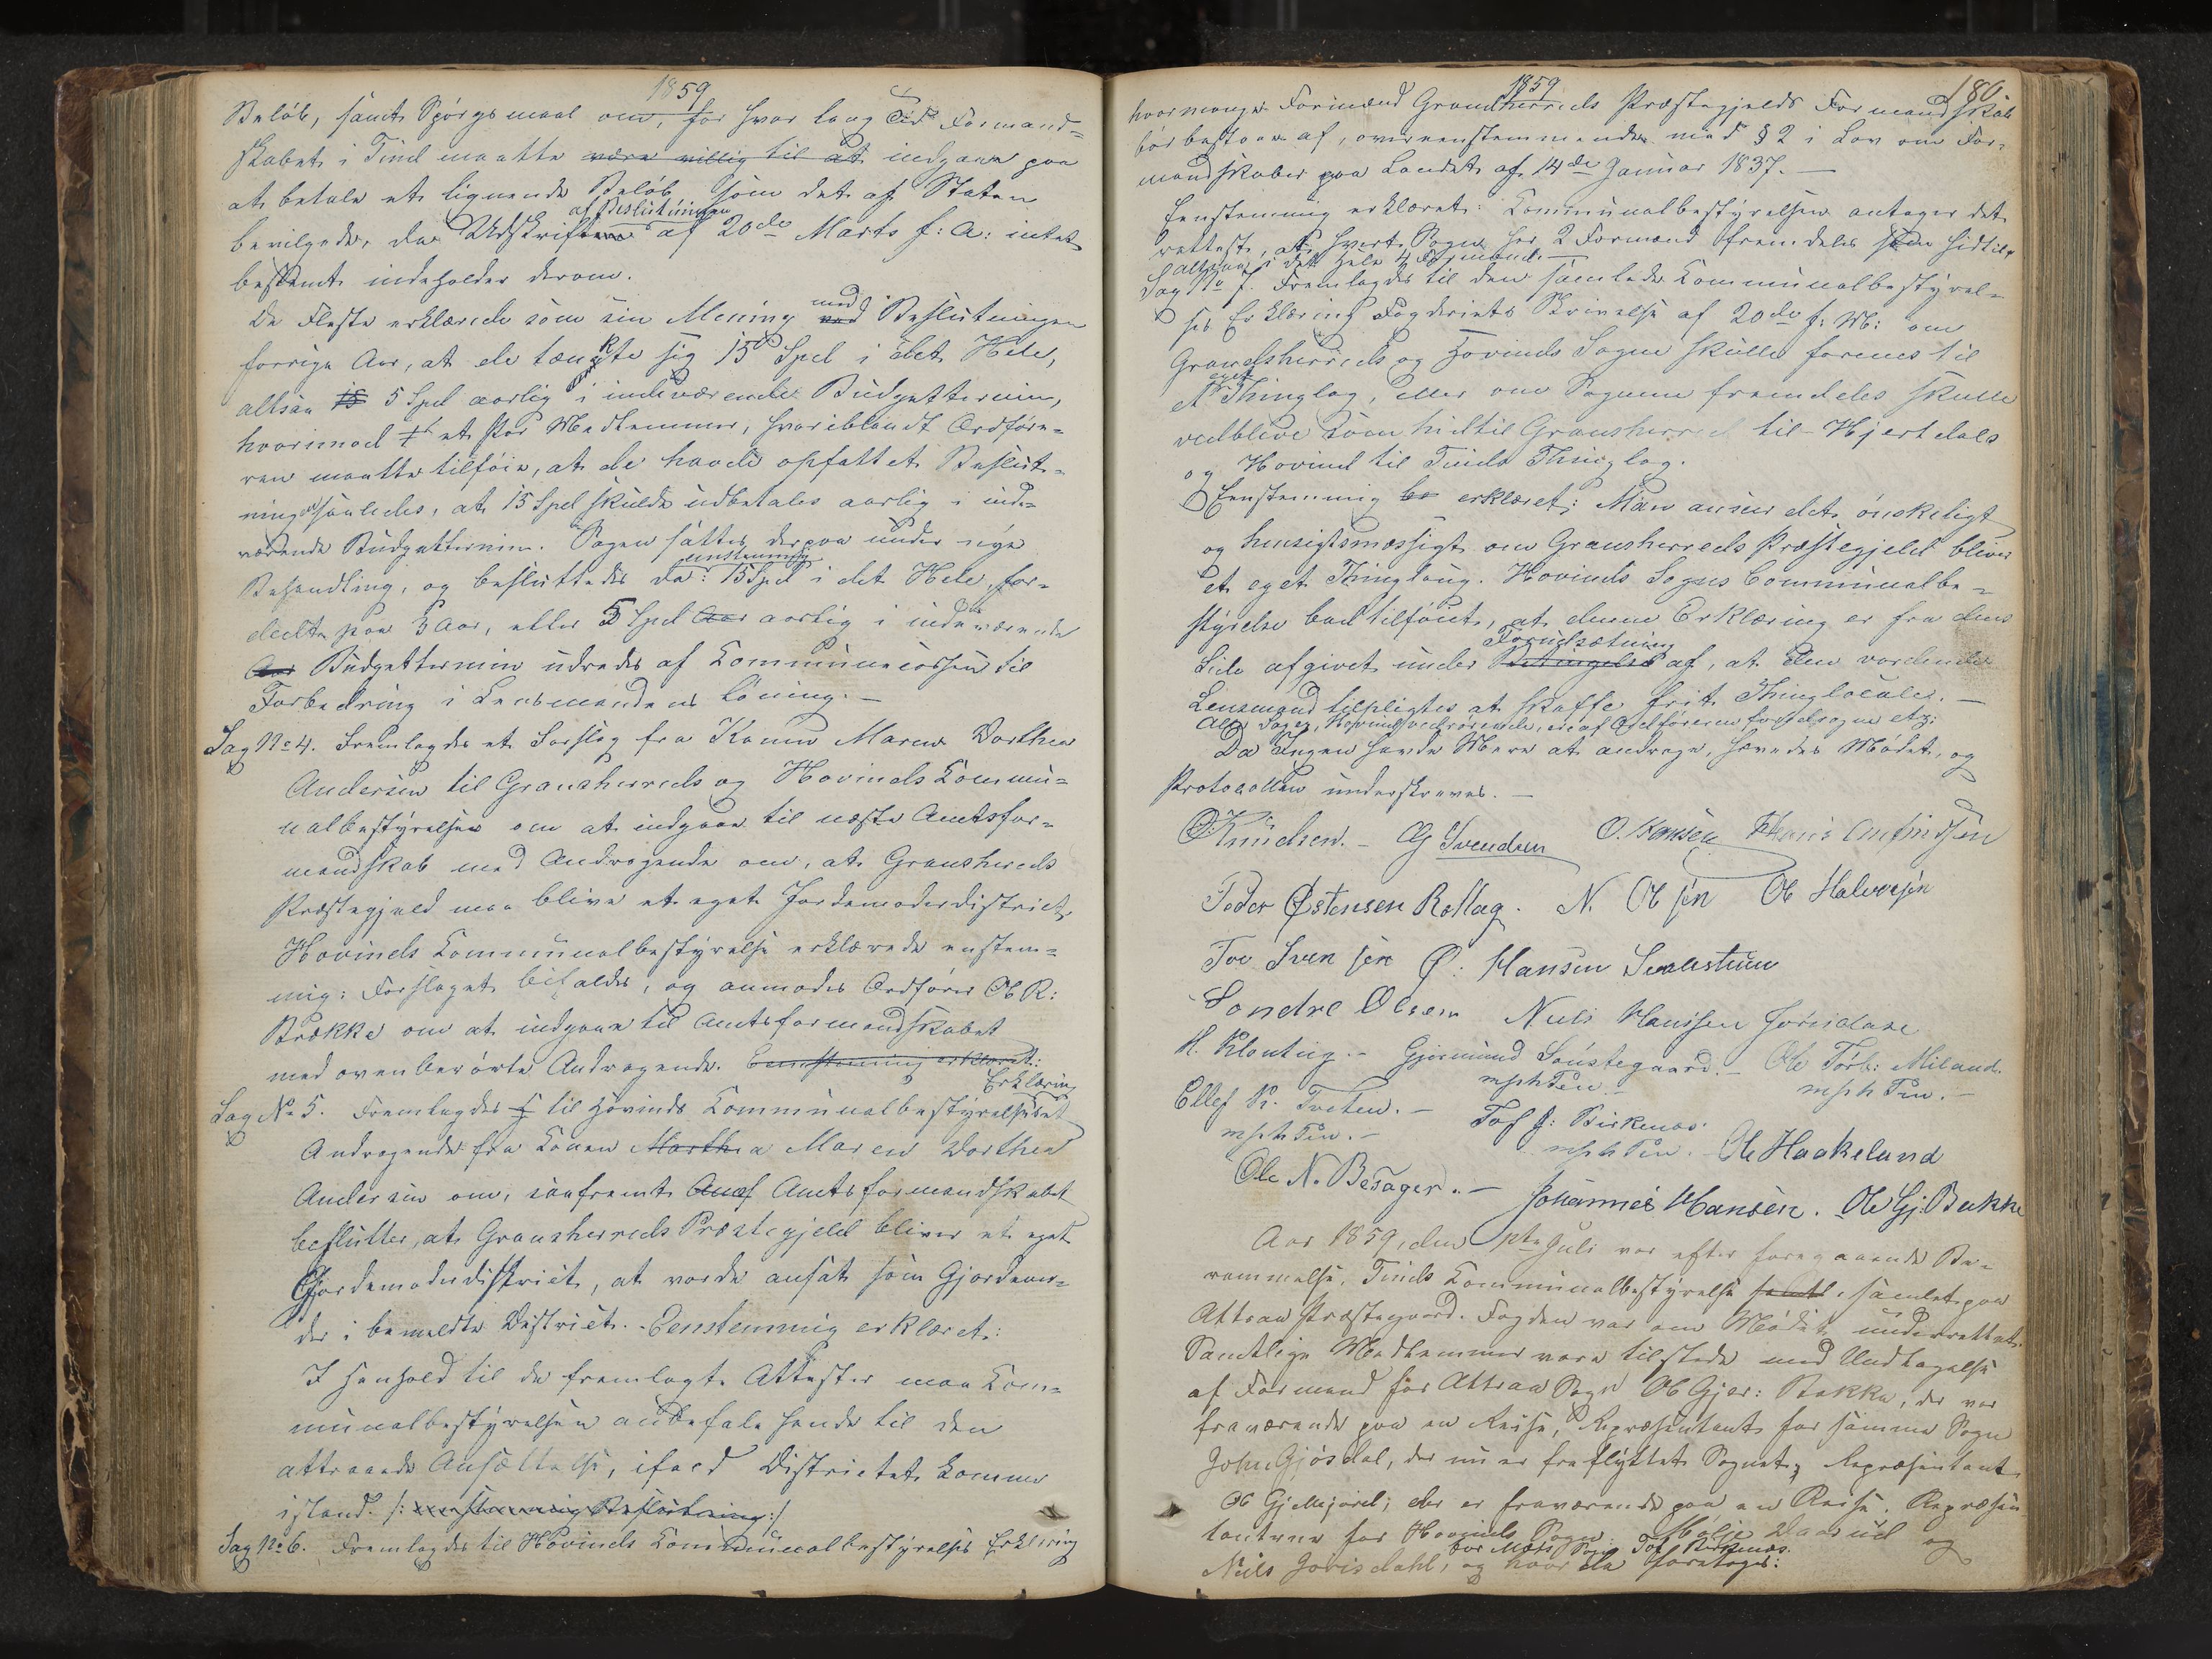 1859
Beløb, samt Spørgsmaal om, for hvor lang Tid Formand-
skabet i Tind maatte være villig til at indgaae paa
at betale et lignende Beløb som det af Staten
af Beslutningen
bevilgede, da Udskriften af 20de Marts f: A: intet
bestemt indeholder derom.
De Fleste erklærede som sin Mening med Beslutningen
forrige Aar, at de tænkte sig 15 Spd i det Hele,
altsaa 15 5 Spd aarlig i indeværende Budgettermin,
hvorimod et Par Medlemmer, hvoriblandt Ordføre-
ren maatte tilføie, at de havde opfattet Beslut-
ningen saaledes, at 15 Spd skulde udbetales aarlig i inde-
værende Budgettermin. Sagen sattes derpaa under nye
enstemmig
Behandling, og besluttedes da: 15 Spd i det Hele, for-
deelte paa 3 Aar, eller 5 Spd Aar aarlig i indeværende
Aar Budgettermin udredes af Kommunecassen til
Forbedring i Lensmandens Løning. —
Sag No 4. Fremlagdes et Forslag fra Konen Maren Dorthea
Andersen til Gransherreds og Hovinds Kommu-
nalbestyrelser om at indgaae til næste Amtsfor-
mandskab med Andragende om, at Gransherreds
Præstegjeld maa blive et eget Jordemoderdistrict.
Hovinds Kommunalbestyrelse erklærede enstem-
mig: Forslaget bifaldes, og anmodes Ordfører Ole R:
Brække om at indgaae til Amtsformandskabet
med ovenberørte Andragende. Eenstemmig erklæret:
Erklæring
Sag No 5. Fremlagdes til Hovinds Kommunalbestyrelses et
Andragende fra Konen Martha Maren Dorthea
Andersen om, saafremt Amtsformandskabet
beslutter, at Gransherreds Præstegjeld bliver et eget
Gjordemoderdistrict, at vorde ansat som Gjordemo-
der i bemeldte District. - Eenstemmig erklæret:
I Henhold til de fremlagte Attester maa Kom-
munalbestyrelsen anbefale hende til den
attraaede Ansættelse, ifald Districtet kommer
istand. /: enstemmig Beslutning :/
Sag No 6. Fremlagdes til Hovinds Kommunalbestyrelses Erklæring
1859
180.
hvormange Formænd Gransherreds Præstegjelds Formandskab
bør bestaae af, overensstemmende med § 2 i Lov om For-
mandskaber paa Landet af 14de Januar 1837. —
Eenstemmig erklæret: Kommunalbestyrelsen antager det
retteste, at hvert Sogn har 2 Formænd fremdeles som hidtil,
altsaa i det Hele 4 Formænd. —
Sag No 7. Fremlagdes til den samlede Kommunalbestyrel-
ses Erklæring Fogderiets Skrivelse af 20de f: M: om
Gransherreds og Hovinds Sogne skulle forenes til
eget
et Thinglag, eller om Sognene fremdeles skulle
vedblive som hidtil Gransherred til Hjertdals
og Hovind til Tinds Thinglag.
Eenstemmig be erklæret: Man anseer det ønskeligt
og hensigtsmæssigt om Gransherreds Præstegjeld bliver
et eget Thinglaug. Hovinds Sogns Communalbe-
styrelse bad tilføiet, at denne Erklæring er fra dens
Forudsætning
Side afgivet under Betingelse af, at den vordende
Lensmand tilpligtes at skaffe frit Thinglocale. —
Alle Sager, Hovind vedrørende, ere af Ordføreren
Da Ingen havde Mere at andrage, hævedes Mødet, og
Protocollen underskreves. —
Ø Knudsen. - G Svendsen O. Hansen Hans Anfindsen
Peder Østensen Rollag. N. Olsen Ole Halvorsen
Tov Svensen Ø: Hansen
Sondre Olsen Niels Hanssen Jorisdale
H. Klonteig. - Gjermund Soústegaard. - Ole Torb: Miland.
mph Pen. - mph Pen. -
Ellef K. Tveten. - Tof J: Birkenæs.
mph Pen. - mph Pen. - Ole Haakeland
Ole N. Besager. - Johannes Hansen. Ole Gj. Bakke
Aar 1859, den 1ste Juli var efter foregaaende Be-
rammelse, Tinds Communalbestyrelse samlet paa
Attraa Præstegaard. Fogden var om Mødet underrettet.
Samtlige Medlemmer vare tilstede med Undtagelse
af Formand for Attraa Sogn Ole Gjer: Bakke, der var
fraværende paa en Reise, Repræsentant for samme Sogn
John Gjøsdal, der nu er fraflyttet Sognet, Repræsentant
Ole Gjellesjord; der er fraværende paa en Reise. Repræsen-
tanterne for Hovinds Sogn. Mølje Daarud og
for Mæls Sogn Tof Birkenæs.
Niels Jorisdahl, og hvor da foretoges: